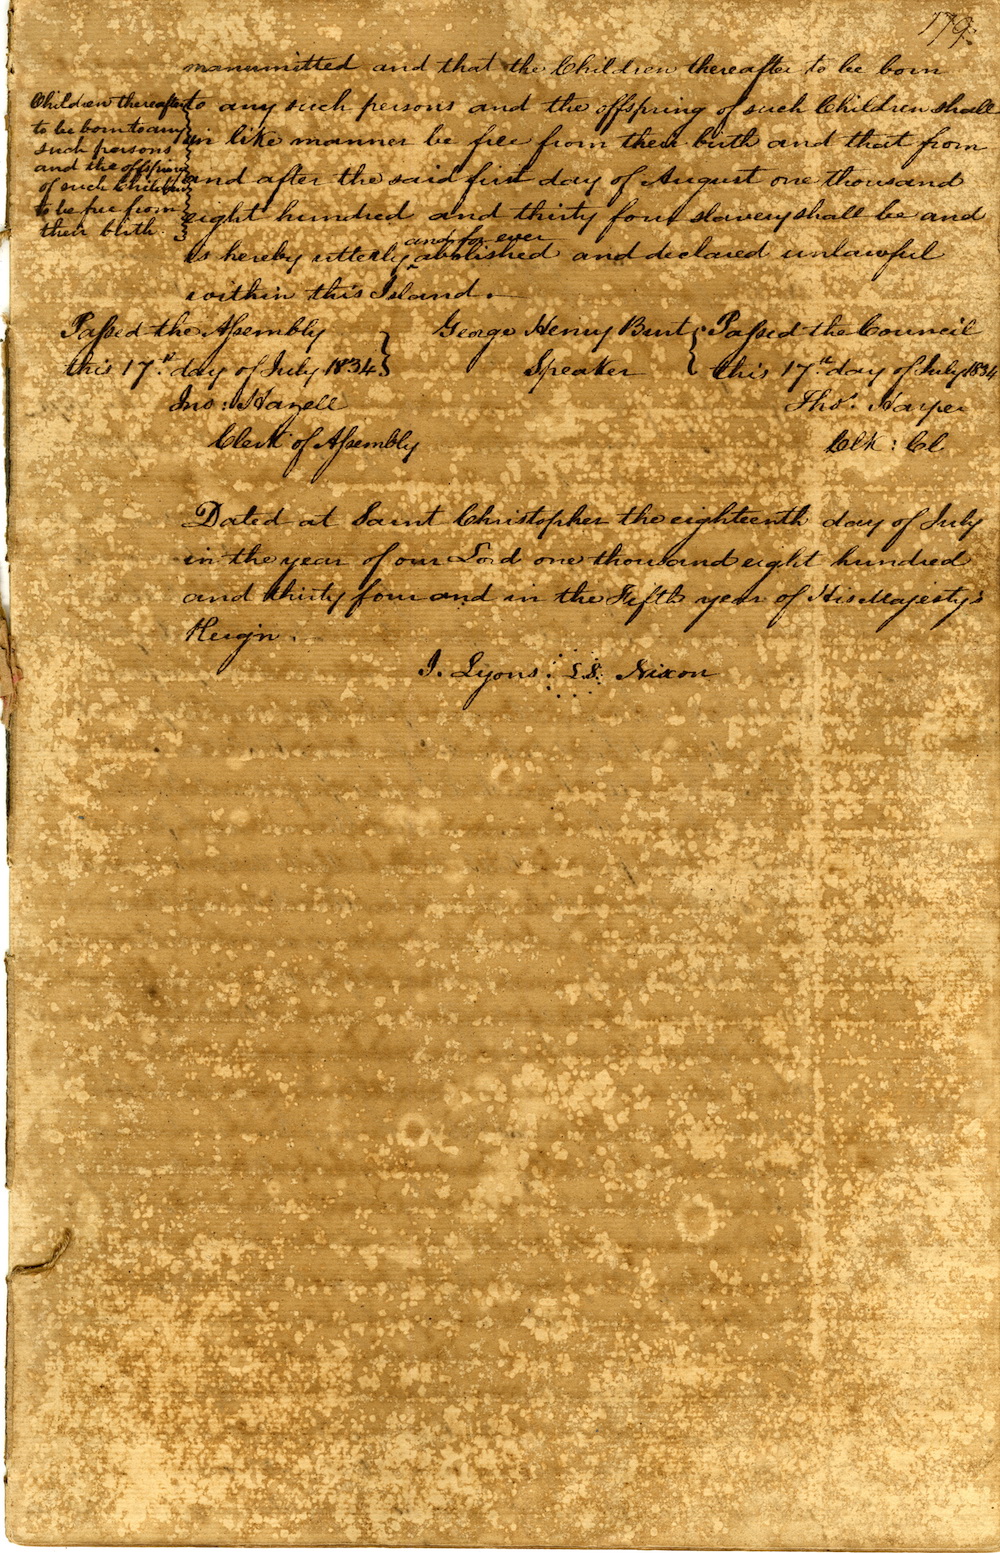 179.
manumitted and that the Children thereafter to be born
Children thereafter
to be born to any
such persons
and the offspring
of such Children
to be free from
their birth.
to any such persons and the offspring of such Children shall
in like manner be free from their birth and that from
and after the said first day of August one thousand
eight hundred and thirty four slavery shall be and
and for ever
is hereby utterly abolished and declared unlawful
within this Island.
Passed the Assembly
this 17th day of July 1834
Jno: Hazell
Clerk of Assembly
George Henry Burt
Speaker
Passed the Council
this 17th day of July 1834
Thos. Harper
Clk: Cl
Dated at Saint Christopher the eighteenth day of July
in the year of our Lord one thousand eight hundred
and thirty four and in the Fifth year of His Majesty's
Reign.
J. Lyons. L.S. Nixon